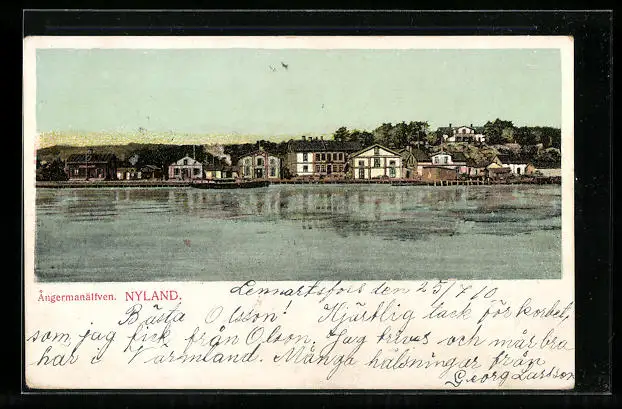 Lennartsfors den 25/7 10
Ångermanälfven. NYLAND.
Bästa Olsson! Hjärtlig tack för kortet,
som jag fick från Olson. Jag trives och mår bra
här i Värmland. Många hälsningar från
Georg Larsson